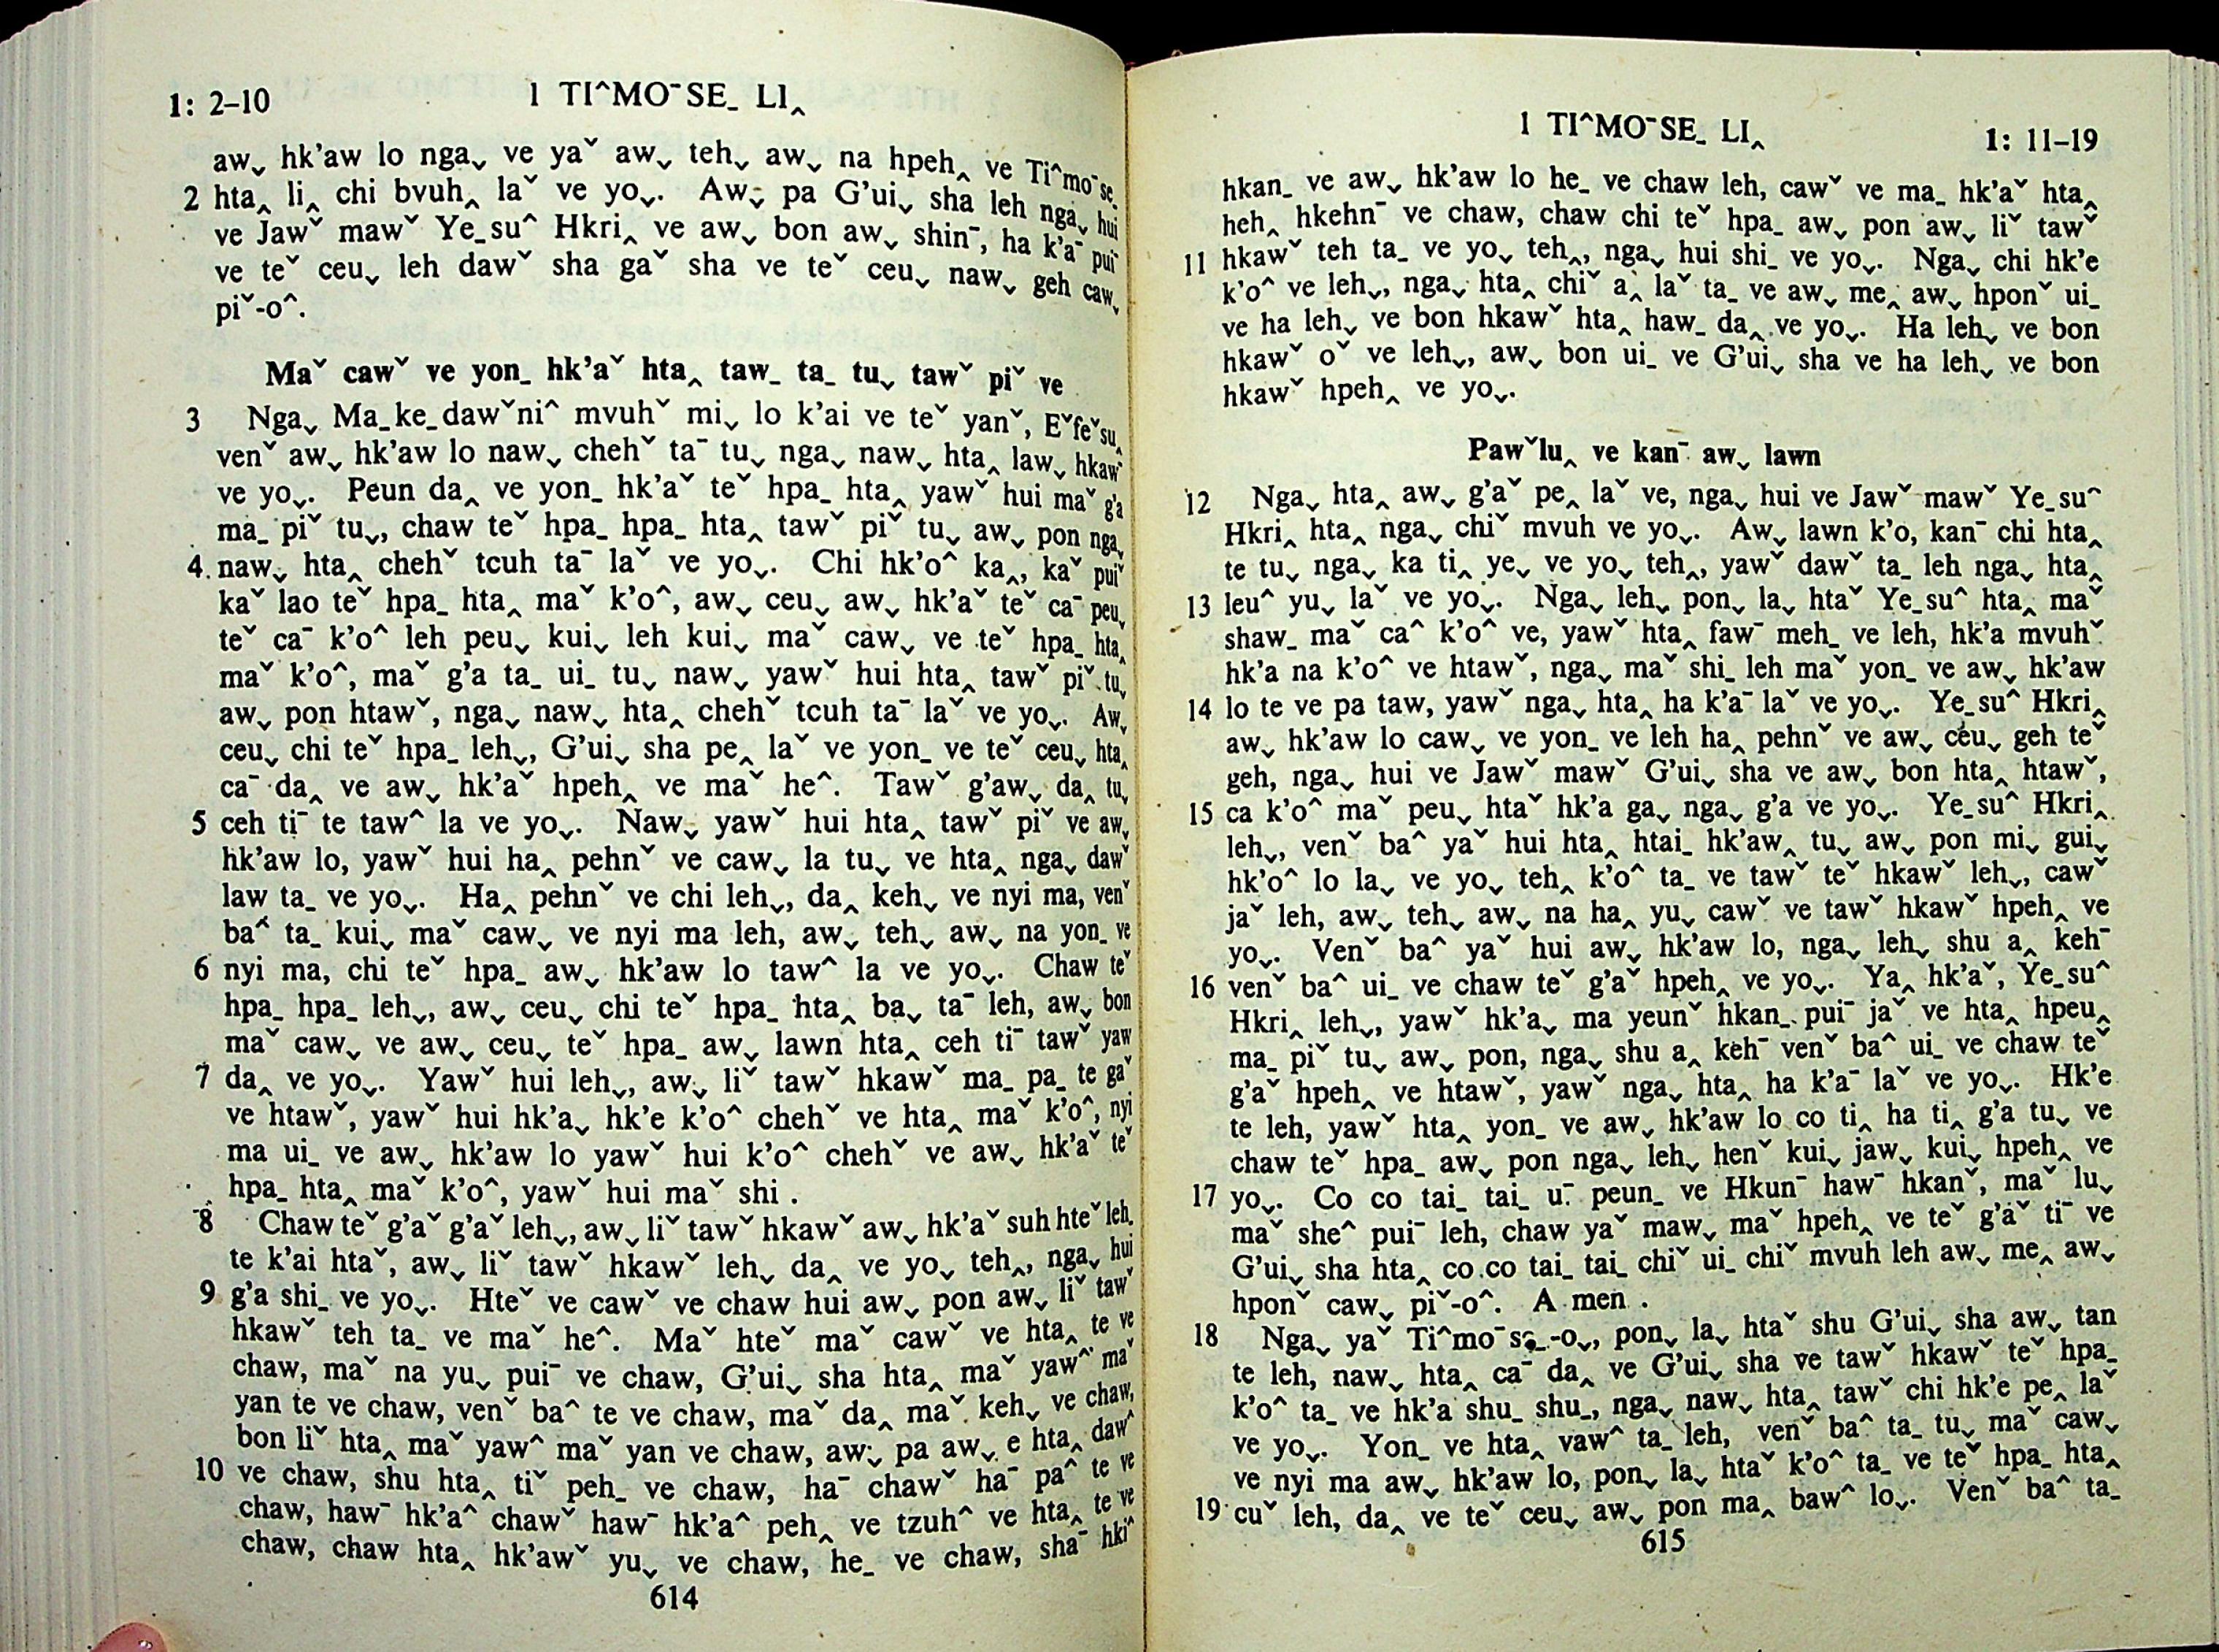 1: 2–10
1 TI^MO¯SE_ LI‸
aw˯ hk'aw lo nga˯ ve yaˇ aw˯ teh˯ aw˯ na hpeh‸ ve Ti^mo¯se_
2 hta‸ li‸ chi bvuh‸ laˇ ve yo˯. Aw˯ pa G'ui˯ sha leh nga˯ hui
ve Jawˇ mawˇ Ye_su^ Hkri‸ ve aw˯ bon aw˯ shin¯, ha k'a¯ pui¯
ve teˇ ceu˯ leh dawˇ sha gaˇ sha ve teˇ ceu˯ naw˯ geh caw˯
piˇ-o^.
Maˇ cawˇ ve yon_ hk'aˇ hta‸ taw_ ta_ tu˯ tawˇ piˇ ve
3 Nga˯ Ma_ke_dawˇni^ mvuhˇ mi˯ lo k'ai ve teˇ yanˇ, Eˇfeˇsu‸
venˇ aw˯ hk'aw lo naw˯ chehˇ ta¯ tu˯ nga˯ naw˯ hta‸ law˯ hkawˇ
ve yo˯. Peun da‸ ve yon_ hk'aˇ teˇ hpa_ hta‸ yawˇ hui maˇ g'a
ma_ piˇ tu˯, chaw teˇ hpa_ hpa_ hta‸ tawˇ piˇ tu˯ aw˯ pon nga˯
4 naw˯ hta‸ chehˇ tcuh ta¯ laˇ ve yo˯. Chi hk'o^ ka‸, kaˇ puiˇ
kaˇ lao teˇ hpa_ hta‸ maˇ k'o^, aw˯ ceu˯ aw˯ hk'aˇ teˇ ca¯ peu˯
teˇ ca¯ k'o^ leh peu˯ kui˯ leh kui˯ maˇ caw˯ ve teˇ hpa_ hta‸
maˇ k'o^, maˇ g'a ta_ ui_ tu˯ naw˯ yawˇ hui hta‸ tawˇ piˇ tu˯
aw˯ pon htawˇ, nga˯ naw˯ hta‸ chehˇ tcuh ta¯ laˇ ve yo˯. Aw˯
ceu˯ chi teˇ hpa_ leh˯, G'ui˯ sha pe‸ laˇ ve yon_ ve teˇ ceu˯ hta‸
ca¯ da‸ ve aw˯ hk'aˇ hpeh‸ ve maˇ he^. Tawˇ g'aw˯ da‸ tu˯
5 ceh ti¯ te taw^ la ve yo˯. Naw˯ yawˇ hui hta‸ tawˇ piˇ ve aw˯
hk'aw lo, yawˇ hui ha‸ pehnˇ ve caw˯ la tu˯ ve hta‸ nga˯ dawˇ
law ta_ ve yo˯. Ha‸ pehnˇ ve chi leh˯, da‸ keh˯ ve nyi ma, venˇ
ba^ ta_ kui˯ maˇ caw˯ ve nyi ma leh, aw˯ teh˯ aw˯ na yon_ ve
6 nyi ma, chi teˇ hpa_ aw˯ hk'aw lo taw^ la ve yo˯. Chaw teˇ
hpa_ hpa_ leh˯, aw˯ ceu˯ chi teˇ hpa_ hta‸ ba˯ ta¯ leh, aw˯ bon
maˇ caw˯ ve aw˯ ceu˯ teˇ hpa_ aw˯ lawn hta‸ ceh ti¯ tawˇ yaw
7 da‸ ve yo˯. Yawˇ hui leh˯, aw˯ liˇ tawˇ hkawˇ ma_ pa_ te gaˇ
ve htawˇ, yawˇ hui hk'a˯ hk'e k'o^ chehˇ ve hta‸ maˇ k'o^, nyi
ma ui_ ve aw˯ hk'aw lo yawˇ hui k'o^ chehˇ ve aw˯ hk'aˇ teˇ
hpa_ hta‸ maˇ k'o^, yawˇ hui maˇ shi .
8 Chaw teˇ g'aˇ g'aˇ leh˯, aw˯ liˇ tawˇ hkawˇ aw˯ hk'aˇ suh hteˇ leh˯
te k'ai htaˇ, aw˯ liˇ tawˇ hkawˇ leh˯ da‸ ve yo˯ teh‸, nga˯ hui
9 g'a shi_ ve yo˯. Hteˇ ve cawˇ ve chaw hui aw˯ pon aw˯ liˇ tawˇ
hkawˇ teh ta_ ve maˇ he^. Maˇ hteˇ maˇ cawˇ ve hta‸ te ve
chaw, maˇ na yu˯ pui¯ ve chaw, G'ui˯ sha hta‸ maˇ yaw^ maˇ
yan te ve chaw, venˇ ba^ te ve chaw, maˇ da‸ maˇ keh˯ ve chaw,
bon liˇ hta‸ maˇ yaw^ maˇ yan ve chaw, aw˯ pa aw˯ e hta‸ daw^
10 ve chaw, shu hta‸ tiˇ peh_ ve chaw, ha¯ chawˇ ha¯ pa^ te ve
chaw, haw¯ hk'a^ chawˇ haw¯ hk'a^ peh‸ ve tzuh^ ve hta‸ te ve
chaw, chaw hta‸ hk'awˇ yu˯ ve chaw, he_ ve chaw, sha¯ hki^
614
1 TI^MO¯SE_ LI‸
1: 11–19
hkan_ ve aw˯ hk'aw lo he_ ve chaw leh, cawˇ ve ma_ hk'aˇ hta‸
heh‸ hkehn¯ ve chaw, chaw chi teˇ hpa_ aw˯ pon aw˯ liˇ tawˇ
11 hkawˇ teh ta_ ve yo˯ teh‸, nga˯ hui shi_ ve yo˯. Nga˯ chi hk'e
k'o^ ve leh˯, nga˯ hta‸ chiˇ a‸ laˇ ta_ ve aw˯ me‸ aw˯ hponˇ ui_
ve ha leh˯ ve bon hkawˇ hta‸ haw_ da‸ ve yo˯. Ha leh˯ ve bon
hkawˇ oˇ ve leh˯, aw˯ bon ui_ ve G'ui˯ sha ve ha leh˯ ve bon
hkawˇ hpeh‸ ve yo˯.
Pawˇlu‸ ve kan¯ aw˯ lawn
12 Nga˯ hta‸ aw˯ g'aˇ pe‸ laˇ ve, nga˯ hui ve Jawˇ mawˇ Ye_su^
Hkri‸ hta‸ nga˯ chiˇ mvuh ve yo˯. Aw˯ lawn k'o, kan¯ chi hta‸
te tu˯ nga˯ ka ti‸ ye˯ ve yo˯ teh‸, yawˇ dawˇ ta_ leh nga˯ hta‸
13 leu^ yu˯ laˇ ve yo˯. Nga˯ leh˯ pon˯ la˯ htaˇ Ye_su^ hta‸ maˇ
shaw_ maˇ ca^ k'o^ ve, yawˇ hta‸ faw¯ meh_ ve leh, hk'a mvuhˇ
hk'a na k'o^ ve htawˇ, nga˯ maˇ shi_ leh maˇ yon_ ve aw˯ hk'aw
14 lo te ve pa taw, yawˇ nga˯ hta‸ ha k'a¯ laˇ ve yo˯. Ye_su^ Hkri‸
aw˯ hk'aw lo caw˯ ve yon_ ve leh ha‸ pehnˇ ve aw˯ ceu˯ geh teˇ
geh, nga˯ hui ve Jawˇ mawˇ G'ui˯ sha ve aw˯ bon hta‸ htawˇ,
15 ca k'o^ maˇ peu˯ htaˇ hk'a ga˯ nga˯ g'a ve yo˯. Ye_su^ Hkri‸
leh˯, venˇ ba^ yaˇ hui hta‸ htai_ hk'aw‸ tu˯ aw˯ pon mi˯ gui˯
hk'o^ lo la˯ ve yo˯ teh‸ k'o^ ta_ ve tawˇ teˇ hkawˇ leh˯, cawˇ
jaˇ leh, aw˯ teh˯ aw˯ na ha‸ yu˯ cawˇ ve tawˇ hkawˇ hpeh‸ ve
yo˯. Venˇ ba^ yaˇ hui aw˯ hk'aw lo, nga˯ leh˯ shu a‸ keh¯
16 venˇ ba^ ui_ ve chaw teˇ g'aˇ hpeh‸ ve yo˯. Ya‸ hk'aˇ, Ye_su^
Hkri‸ leh˯, yawˇ hk'a˯ ma yeunˇ hkan_ pui¯ jaˇ ve hta‸ hpeu‸
ma_ piˇ tu˯ aw˯ pon, nga˯ shu a‸ keh¯ venˇ ba^ ui_ ve chaw teˇ
g'aˇ hpeh‸ ve htawˇ, yawˇ nga˯ hta‸ ha k'a¯ laˇ ve yo˯. Hk'e
te leh, yawˇ hta‸ yon_ ve aw˯ hk'aw lo co ti‸ ha ti‸ g'a tu˯ ve
chaw teˇ hpa_ aw˯ pon nga˯ leh˯ henˇ kui˯ jaw˯ kui˯ hpeh‸ ve
17 yo˯. Co co tai_ tai_ u¯ peun_ ve Hkun¯ haw¯ hkanˇ, maˇ lu˯
maˇ she^ pui¯ leh, chaw yaˇ maw˯ maˇ hpeh‸ ve teˇ g'aˇ ti¯ ve
G'ui˯ sha hta‸ co co tai_ tai_ chiˇ ui_ chiˇ mvuh leh aw˯ me‸ aw˯
hponˇ caw˯ piˇ-o^. A men .
18 Nga˯ yaˇ Ti^mo¯se_-o˯, pon˯ la˯ htaˇ shu G'ui˯ sha aw˯ tan
te leh, naw˯ hta‸ ca¯ da‸ ve G'ui˯ sha ve tawˇ hkawˇ teˇ hpa_
k'o^ ta_ ve hk'a shu_ shu_, nga˯ naw˯ hta‸ tawˇ chi hk'e pe‸ laˇ
ve yo˯. Yon_ ve hta‸ vaw^ ta_ leh, venˇ ba^ ta_ tu˯ maˇ caw˯
ve nyi ma aw˯ hk'aw lo, pon˯ la˯ htaˇ k'o^ ta_ ve teˇ hpa_ hta‸
19 cuˇ leh, da‸ ve teˇ ceu˯ aw˯ pon ma‸ baw^ lo˯. Venˇ ba^ ta_
615